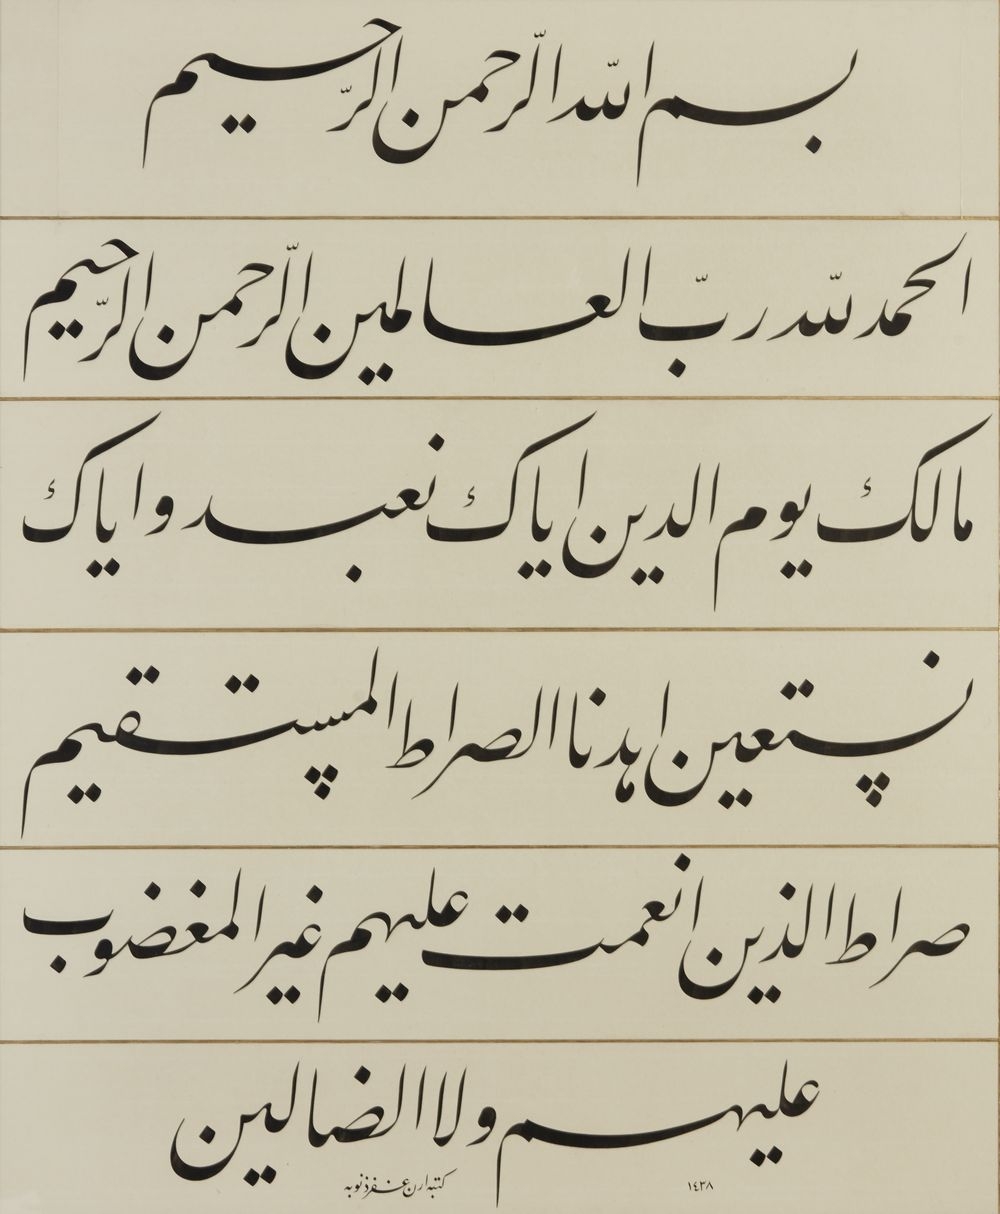 بسم الله الرحمن الرّحيم
الحمد لله ربّ العالمين الرّحمن الرّحيم
مالك يوم الدين اياك نعبد واياك
نستعين اهدنا الصراط المستقيم
صراط الذين انعمت عليهم غير المغضوب
عليهم ولا الضالين
١٤٣٨ كتبه ارن غفر ذنوبه